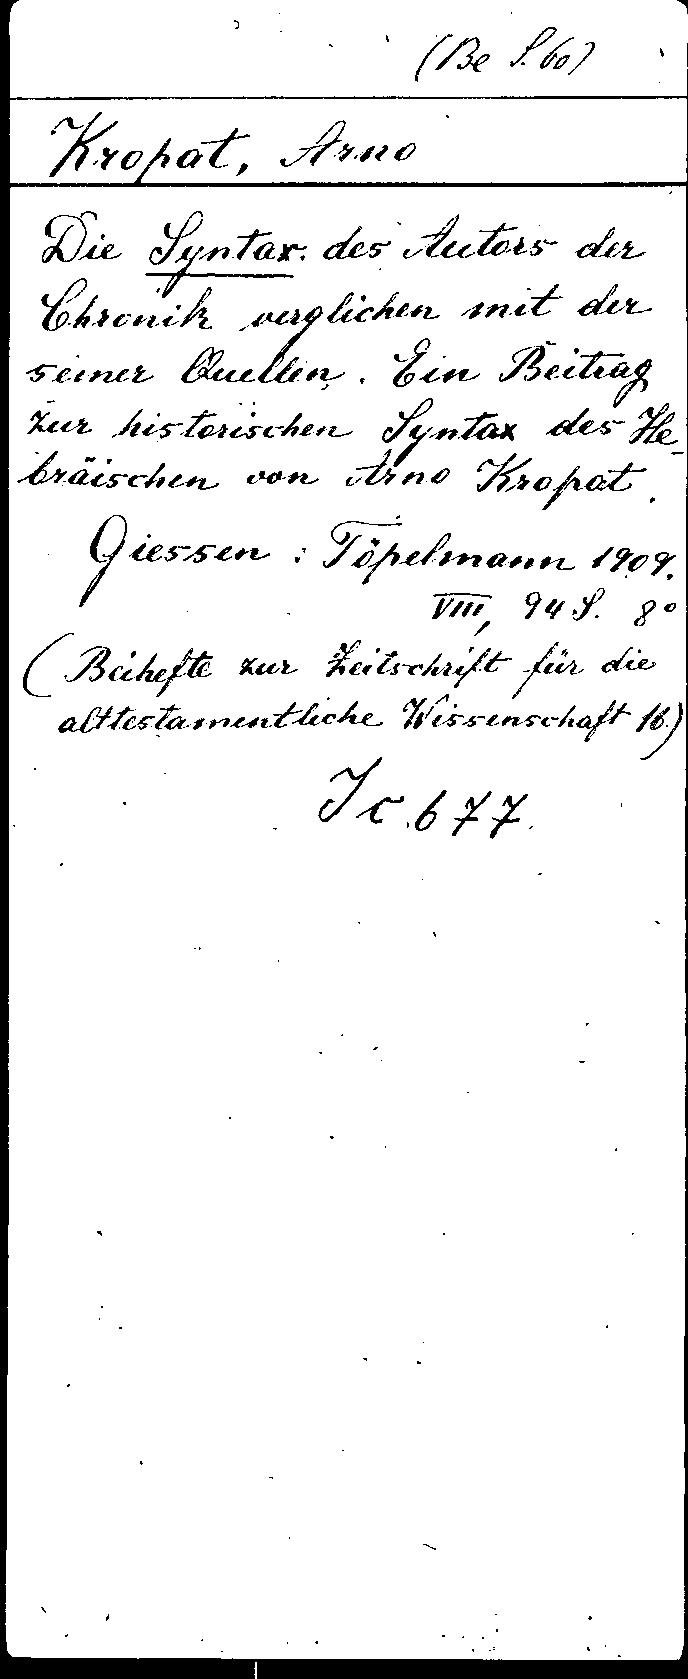 (Be S. 60)
Kropat, Arno
Die Syntax des Autors der
Chronik verglichen mit der
seiner Quellen. Ein Beitrag
zur historischen Syntax des He-
bräischen von Arno Kropat.
Giessen: Töpelmann 1909.
VIII, 94 S. 8°
(Beihefte zur Zeitschrift für die
alttestamentliche Wissenschaft 16.)
Ic 677